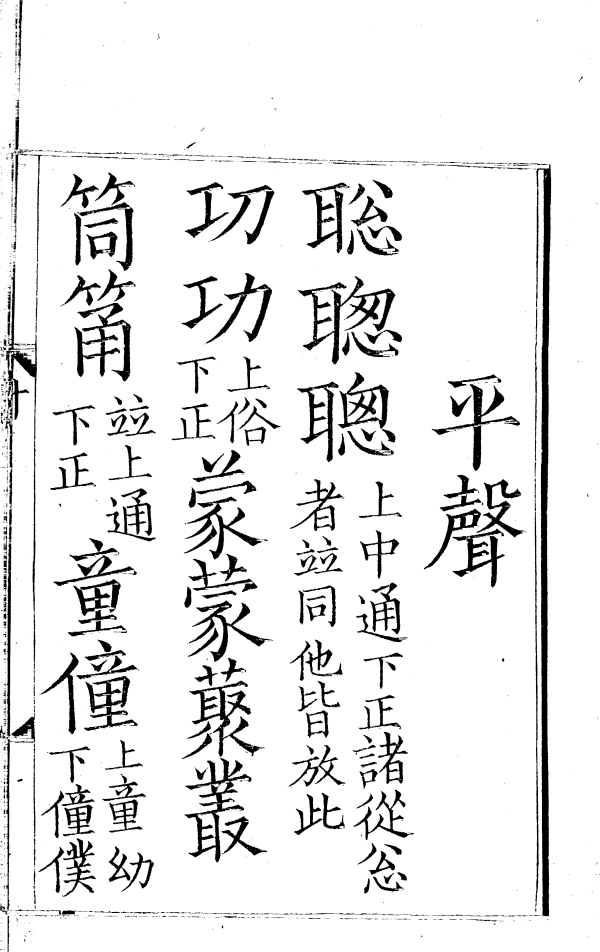 平聲
聡聦聰上中通下正諸從忩者竝同他皆放此
㓛功上俗下正蒙蒙藂叢
筒筩竝上通下正童僮上童幼下僮僕